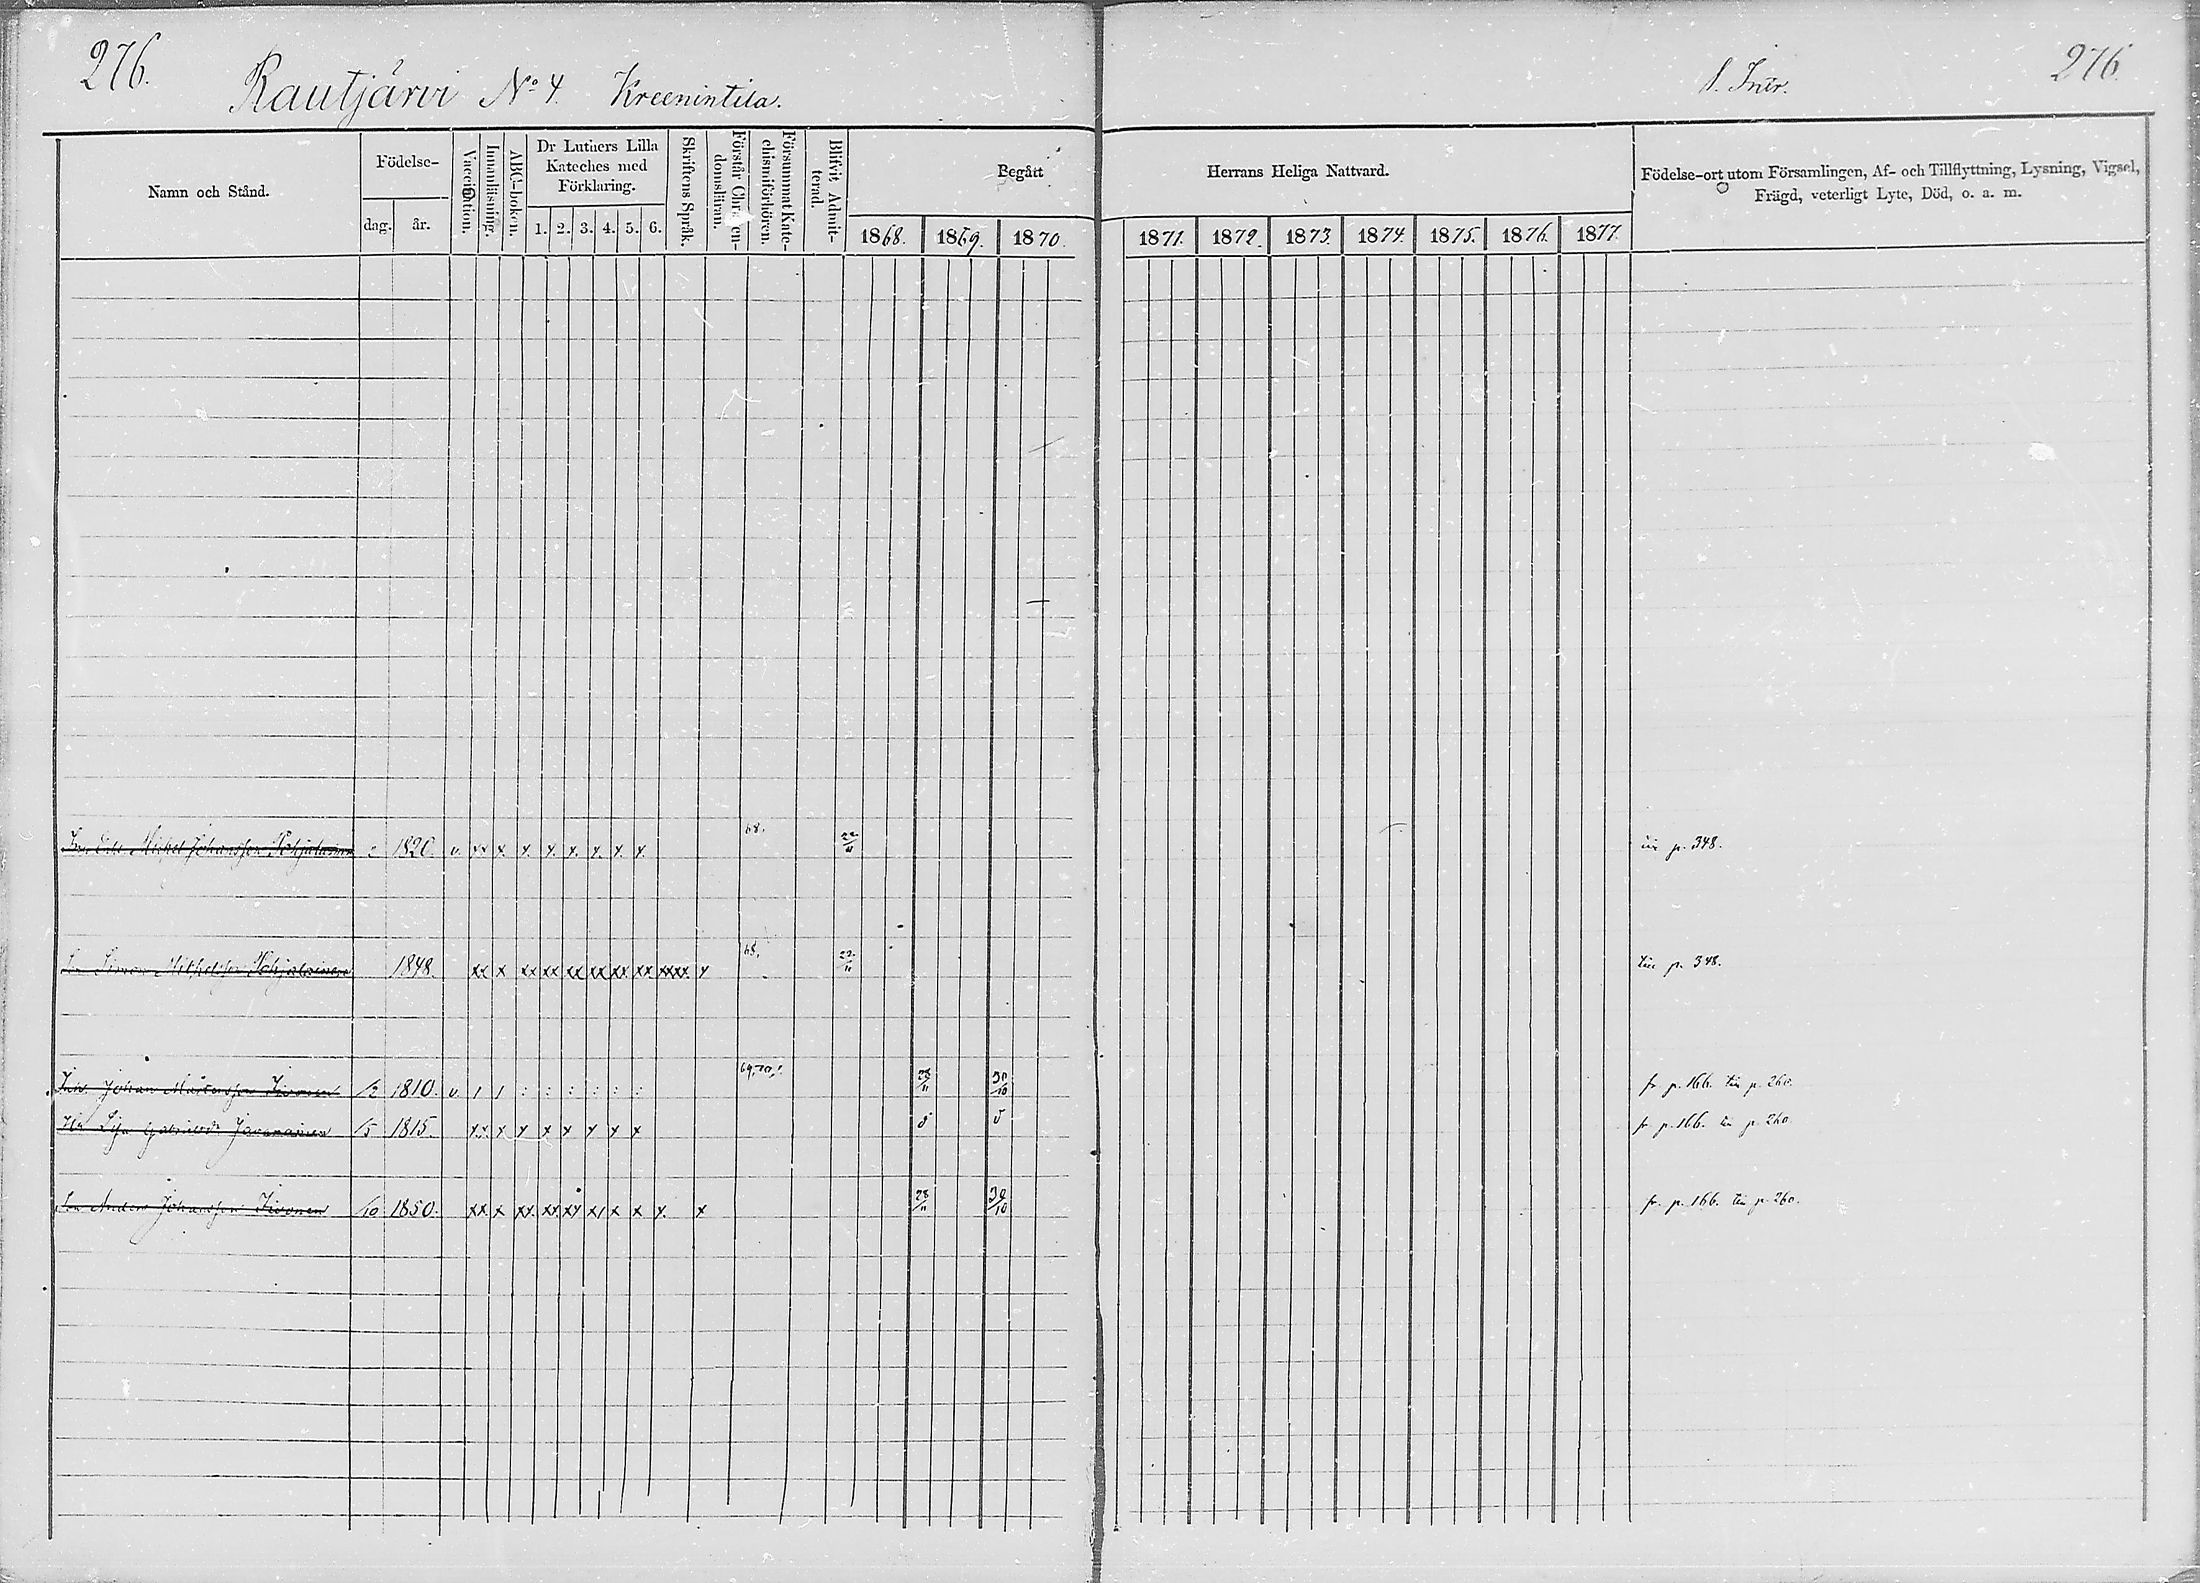 276.
Rautjärvi No 4. Kreenintila.
276.
Namn och Stånd.
Födelse-
dag.
år.
Vaccination.
Innanläsning.
ABC-boken.
Dr Luthers Lilla
Kateches med
Förklaring.
1. 2. 3. 4. 5. 6.
Skriftens Språk.
Förstår Christen-
domsläran.
Försummat Kate-
chismiförhören.
Blifvit Admit-
terad.
Begått
Herrans Heliga Nattvard.
1868. 1869. 1870.
1871. 1872. 1873. 1874. 1875. 1876. 1877.
Födelse-ort utom Församlingen, Af- och Tillflyttning, Lysning, Vigsel,
Frägd, veterligt Lyte, Död, o. a. m.
Michel Johansson Pohjalainen 1820. v. xx x. x. x. x. x. x. x. 68. 22/11 p. 348.
Simon Michelsson Pohjalainen 1848. xx x xx xx xx xx xx xx xxxx x 68. 22/11 p. 348.
Johan Mårtensson Iivonen /2 1810. v. 1 1 : : : : : : 28/11 30/10 fr p. 166. p. 260.
Javanainen /5 1815. xx x x x x x x x fr p. 166. p. 260
Son Anders Johansson Iivonen /10 1850. xx x xx. xx xx x x x x. x 28/11 30/10 fr. p. 166. p. 260.